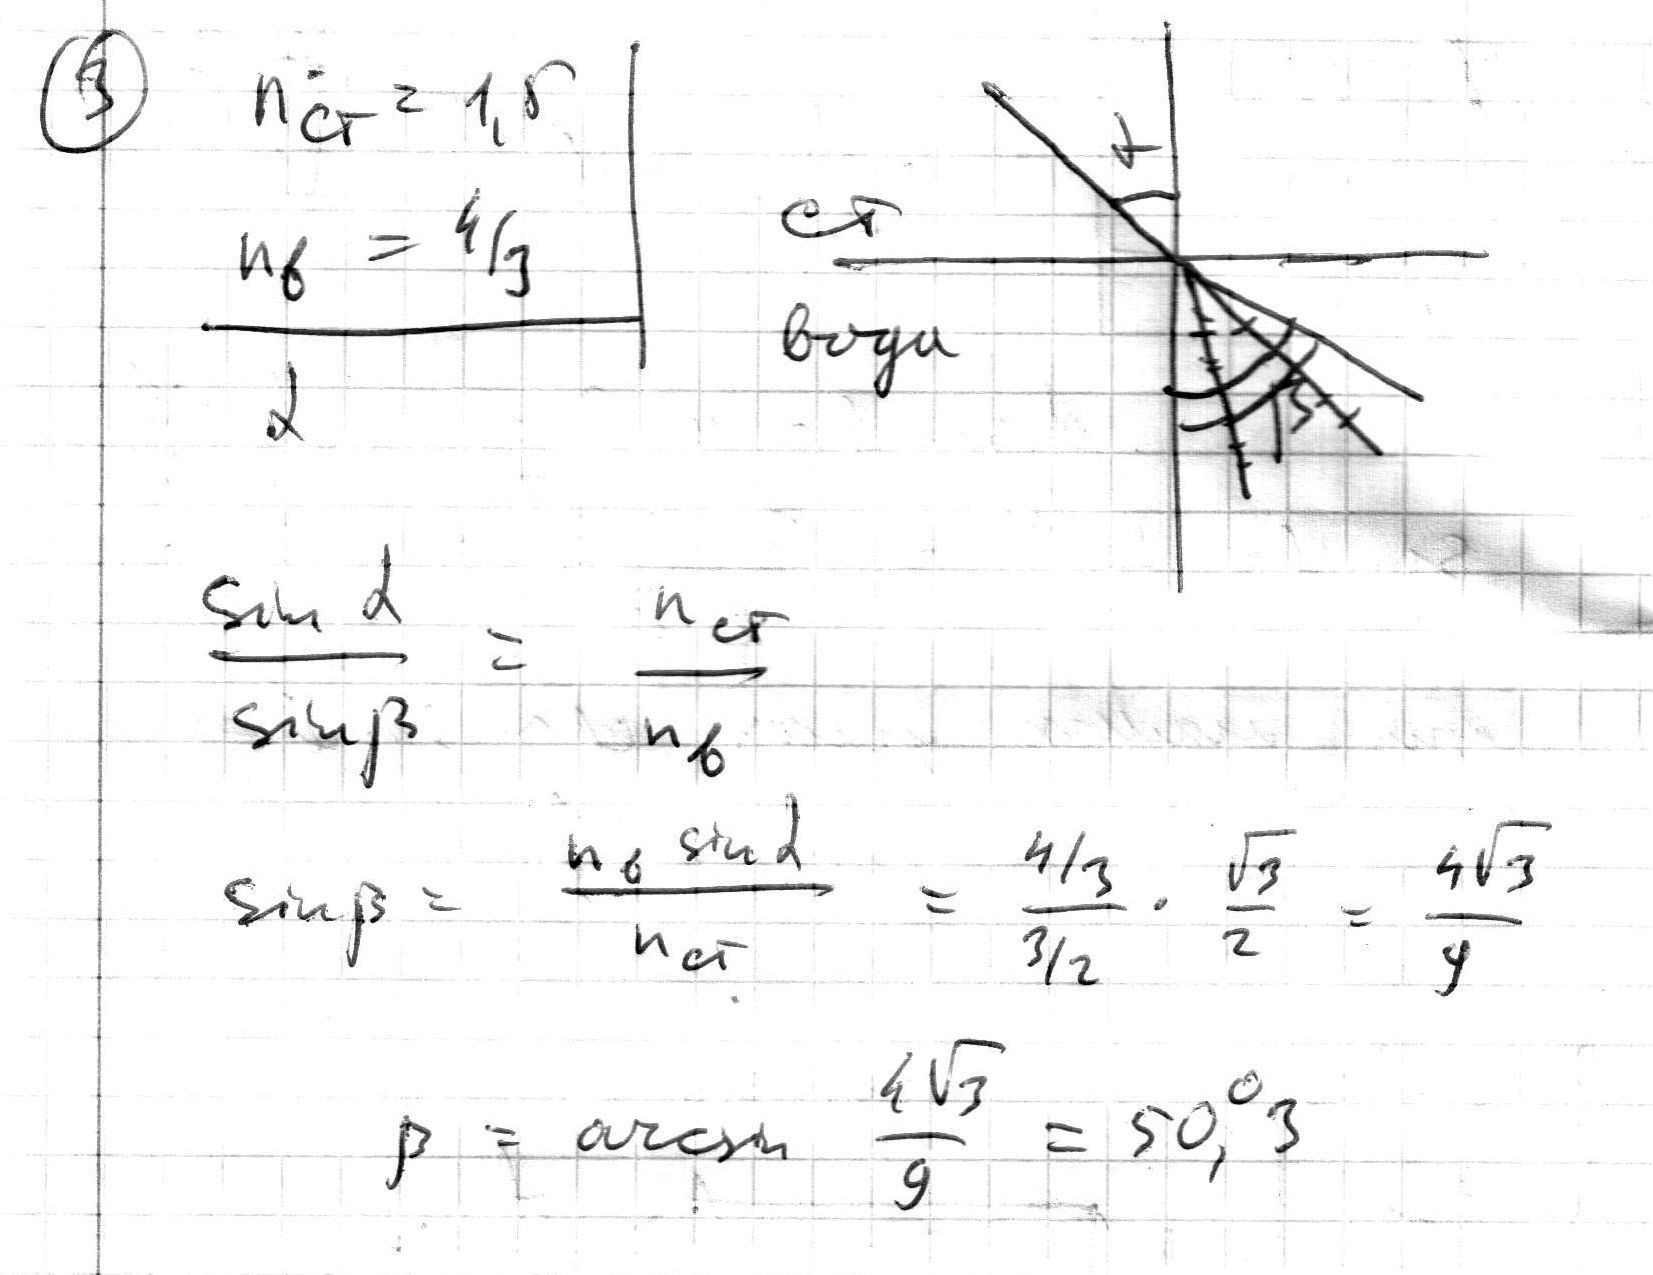 3
nст = 1,5
nв = 4/3
α
α
ст
вода
β
sin α / sin β = nст / nв
sin β = nв sin α / nст = 4/3 / 3/2 · √3 / 2 = 4√3 / 9
β = arcsin 4√3 / 9 = 50,°3